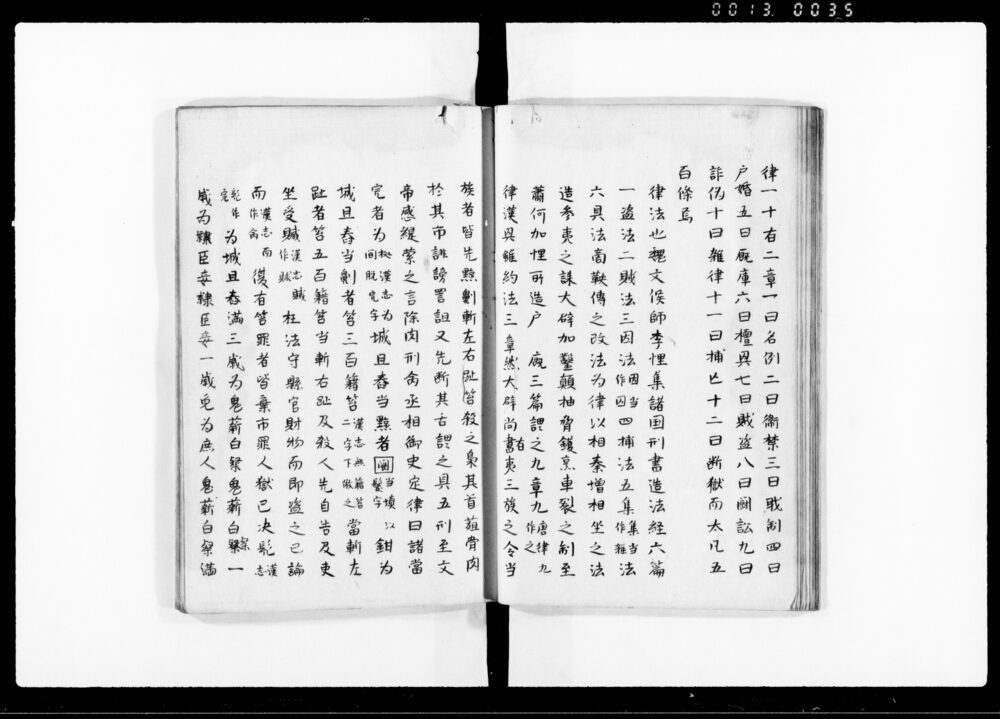 0013 0035
律一十有二章一曰名例二曰衞禁三曰職制四曰
户婚五曰厩庫六曰擅興七曰賊盗八曰闘訟九曰
詐偽十曰雑律十一曰捕亡十二曰断獄而大凡五
百條焉
律法也魏文侯師李悝集諸国刑書造法経六篇
一盗法二賊法三因法因当作囚四捕法五集集当作雑法
六具法商鞅傳之改法为律以相秦增相坐之法
造参夷之誅大辟加鑿顛抽脅鑊烹車裂之制至
蕭何加悝所造户 厩三篇謂之九章九唐律九作之
律漢興雖約法三章然大辟尚書有夷三族之令当
族者皆先黥劓斬左右趾笞殺之梟其首葅骨肉
於其市誹謗詈詛又先断其舌謂之具五刑至文
帝感緹縈之言除肉刑 丞相御史定律曰諸當
完者为 漢志为間脱完字城旦舂当黥者闕当填髡字以鉗为
城旦舂当劓者笞三百籍笞漢志無籍笞二字下倣之當斬左
趾者笞五百籍笞当斬右趾及殺人先自告及吏
坐受贓漢志贓作賕枉法守縣官財物而即盗之已論
而漢志而作命復有笞罪者皆棄市罪人獄已决髡漢志
髡作完为城旦舂满三歲为鬼薪白粲鬼薪白粲一
歲为隷臣妾隷臣妾一歲免为庶人鬼薪白粲满